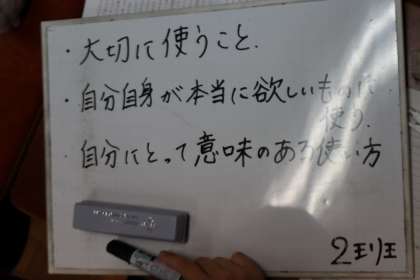 ・大切に使うこと.
・自分自身が本当に欲しいものに
使う.
・自分にとって意味のある使い方
2班